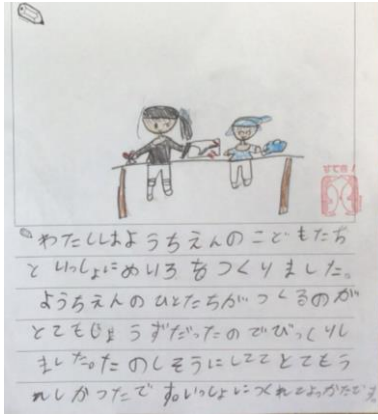 わたしはようちえんのこどもたち
といっしょにめいろをつくりました。
ようちえんのひとたちがつくるのが
とてもじょうずだったのでびっくりし
ました。たのしそうにしててとてもう
れしかったです。いっしょにつくれてよかったです。